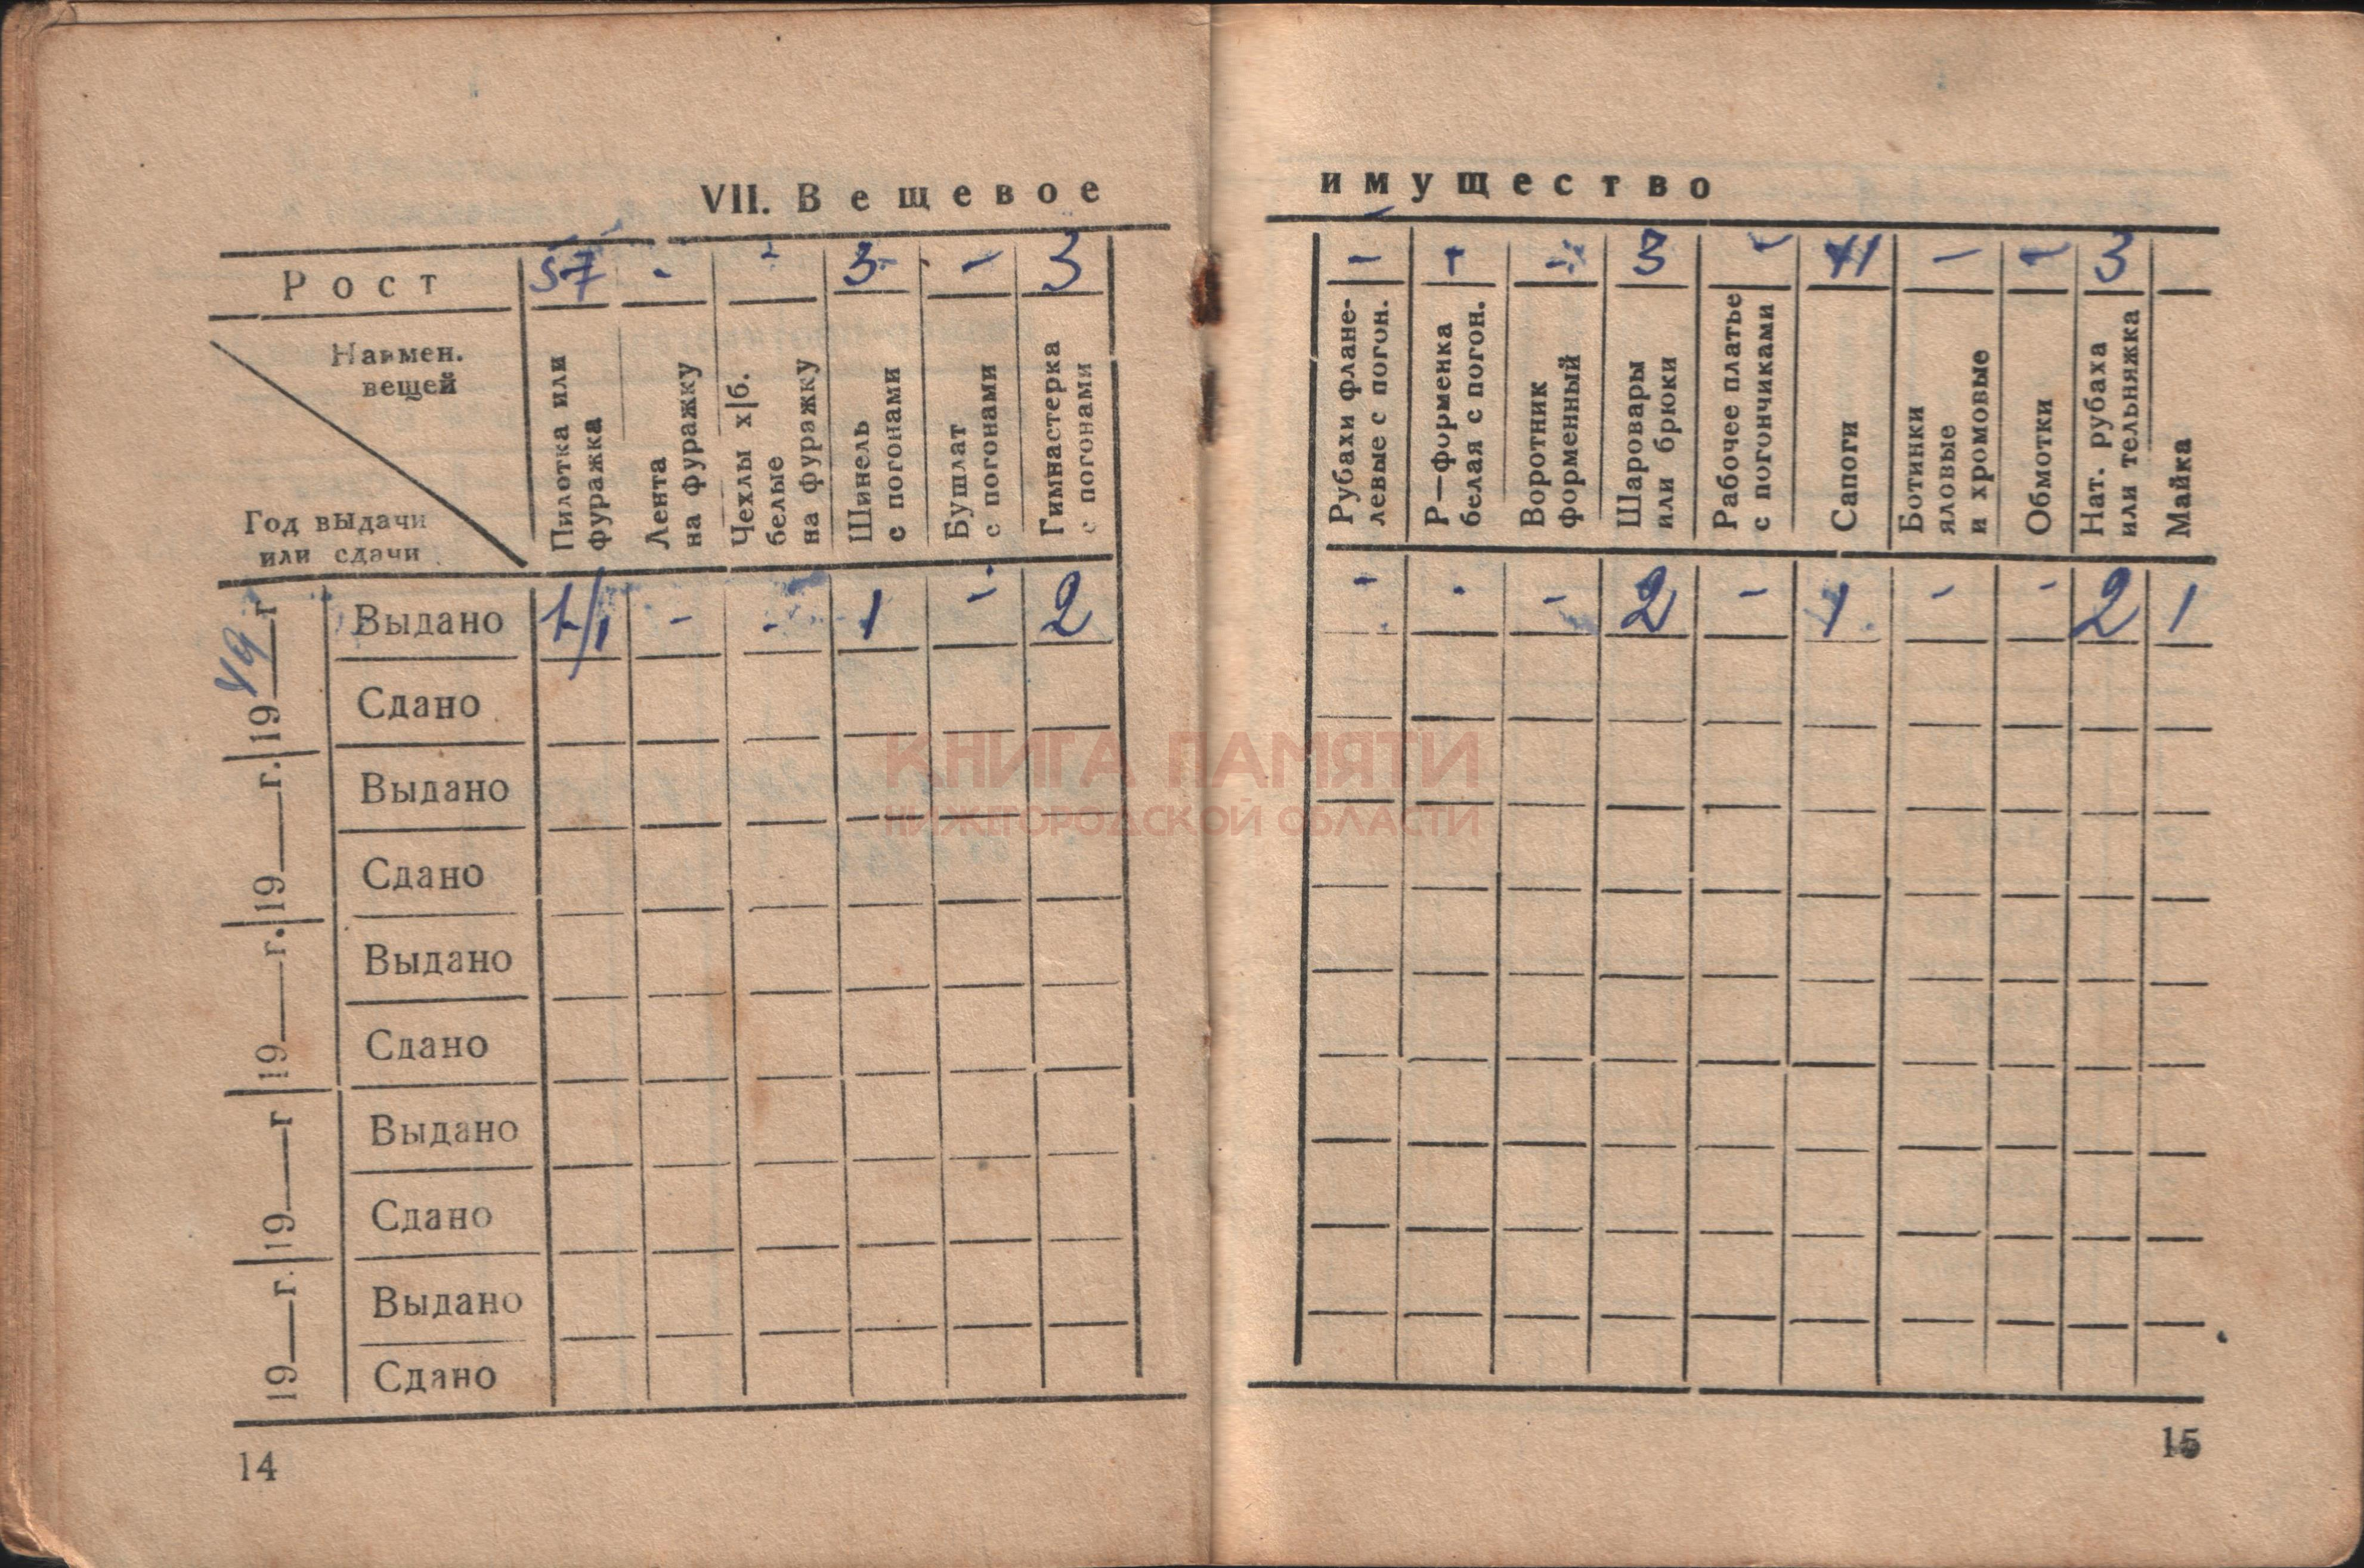 VII. Вещевое имущество
Рост 57 - - 3 - 3 - - - 3 - 41 - - 3
Наимен. вещей
Год выдачи или сдачи
Пилотка или фуражка
Лента на фуражку
Чехлы х|б. белые на фуражку
Шинель с погонами
Бушлат с погонами
Гимнастерка с погонами
Рубахи флане-
левые с погон.
Р—форменка белая с погон.
Воротник форменный
Шаровары или брюки
Рабочее платье с погончиками
Сапоги
Ботинки яловые и хромовые
Обмотки
Нат. рубаха или тельняжка
Майка
1949 г
Выдано 1/1 - - 1 - 2 - - - 2 - 1 - - 2 1
Сдано
19 г.
Выдано
Сдано
19 г.
Выдано
Сдано
19 г
Выдано
Сдано
19 г.
Выдано
Сдано
14
15
КНИГА ПАМЯТИ
НИЖЕГОРОДСКОЙ ОБЛАСТИ